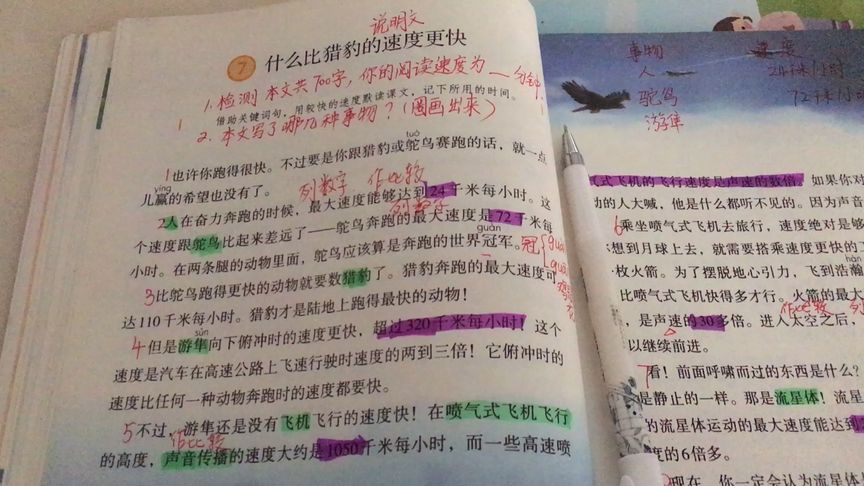 说明文
7 什么比猎豹的速度更快
1. 检测 本文共700字，你的阅读速度为__分钟
借助关键词句，用较快的速度默读课文，记下所用的时间。
2. 本文写了哪几种事物？（圈画出来）
tuó
1也许你跑得很快。不过要是你跟猎豹或鸵鸟赛跑的话，就一点
yíng
儿赢的希望也没有了。
列数字 作比较
2人在奋力奔跑的时候，最大速度能够达到24千米每小时。这
列数字
个速度跟鸵鸟比起来差远了——鸵鸟奔跑的最大速度是72千米每
guàn
小时。在两条腿的动物里面，鸵鸟应该算是奔跑的世界冠军。
冠
3比鸵鸟跑得更快的动物就要数猎豹了。猎豹奔跑的最大速度可
达110千米每小时。猎豹才是陆地上跑得最快的动物！
sǔn
4但是游隼向下俯冲时的速度更快，超过320千米每小时！这个
速度是汽车在高速公路上飞速行驶时速度的两到三倍！它俯冲时的
速度比任何一种动物奔跑时的速度都要快。
5不过，游隼还是没有飞机飞行的速度快！在喷气式飞机飞行
作比较
的高度，声音传播的速度大约是1050千米每小时，而一些高速喷
事物 速度
人
鸵鸟
游隼
气式飞机的飞行速度是声速的数倍。如果你对
动的人大喊，他是什么都听不见的。因为声音
6乘坐喷气式飞机去旅行，速度绝对是够
想到月球上去，就需要搭乘速度更快的
hàn
枚火箭。为了摆脱地心引力，飞到浩瀚
比喷气式飞机快得多才行。火箭的最大
作比较 列
，是声速的30多倍。进入太空之后，
以继续前进。
7看！前面呼啸而过的东西是什么？
是静止的一样。那是流星体！流星
的流星体运动的最大速度能达到
度的6倍多。
现在，你一定会认为流星体